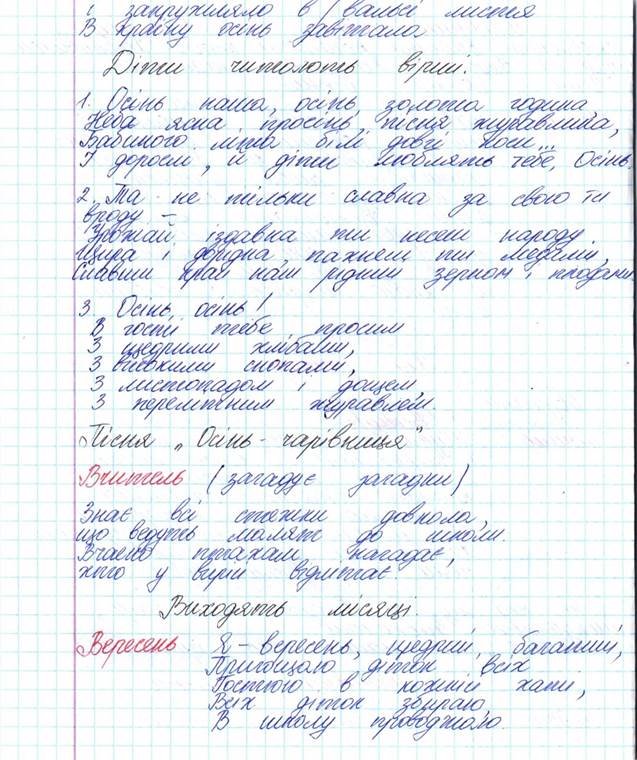 і закружляло в вальсі листя
В країну осінь завітала
Діти читають вірші.
1. Осінь наша, осінь, золота година,
Неба ясна просінь, пісня журавлина,
Бабиного літа білі довгі коси...
І дорослі, й діти люблять тебе, Осінь.
2. Та не тільки славна за свою ти
вроду –
Урожай іздавна ти несеш народу.
Щира і догідна, пахнеш ти медами,
Славиш край наш рідний зерном і плодами.
3. Осінь, осінь!
В гості тебе просим
З щедрими хлібами,
З високими снопами,
З листопадом і дощем,
З перелітним журавлем.
Пісня „Осінь - чарівниця"
Вчитель (загадує загадки)
Знає всі стежки довкола,
що ведуть малят до школи.
Вчасно птахам нагадає,
хто у вирій відлітає.
Виходять місяці.
Вересень. Я – вересень, щедрий, багатий,
Пригощаю діток всіх
Гостюю в кожній хаті,
Всіх діток збираю,
В школу проводжаю.